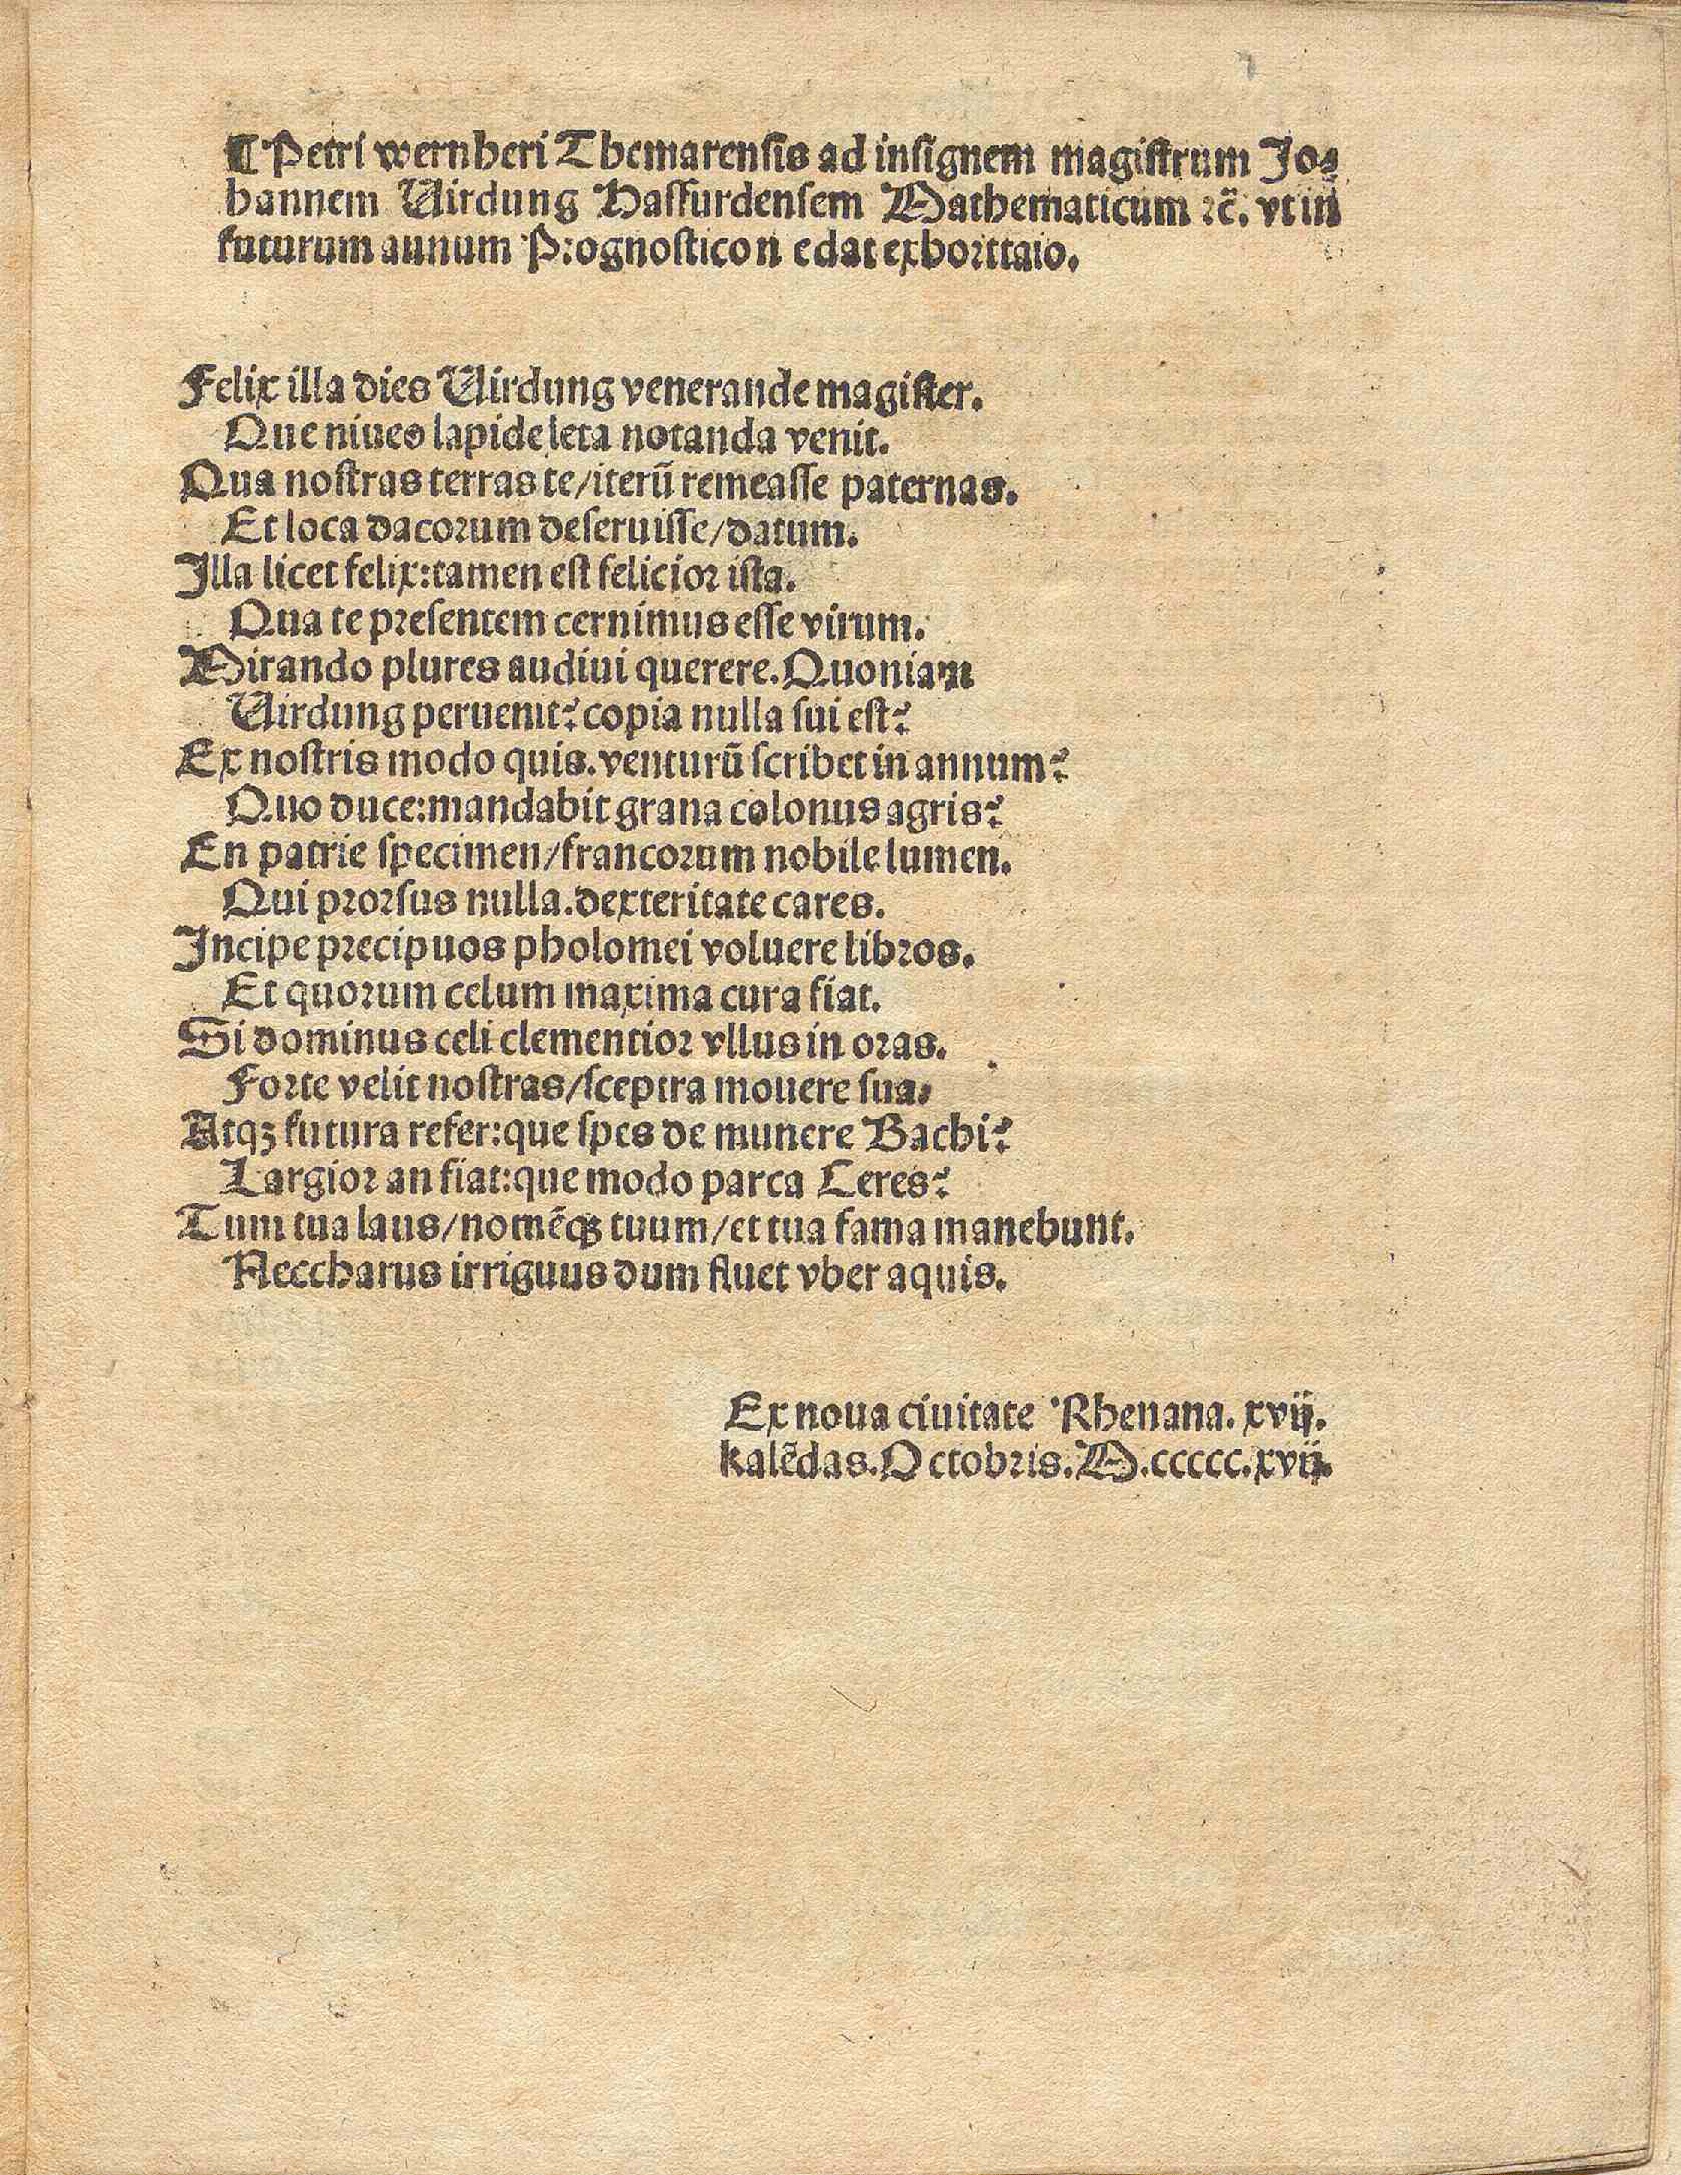 ¶ Petri wernheri Themarensis ad insignem magistrum Jo⸗
hannem Uirdung Hasfurdensem Mathematicum ⁊c̄. vt in
futurum annum Prognosticon edat exhorttaio.
Felix illa dies Uirdung venerande magister.
Que niueo lapide leta notanda venit.
Qua nostras terras te/iterū remeasse paternas.
Et loca dacorum deseruisse/datum.
Illa licet felix:tamen est felicior ista.
Qua te presentem cernimus esse virum.
Mirando plures audiui querere. Quoniam
Uirdung peruenit? copia nulla sui est?
Ex nostris modo quis.venturū scribet in annum?
Quo duce:mandabit grana colonus agris?
En patrie specimen/francorum nobile lumen.
Qui prorsus nulla.dexteritate cares.
Incipe precipuos pholomei voluere libros.
Et quorum celum maxima cura fiat.
Si dominus celi clementior vllus in oras.
Forte velit nostras/sceptra mouere sua.
Atqꝫ futura refer:que spes de munere Bachi?
Largior an fiat:que modo parca Ceres?
Tum tua laus/nomēqꝫ tuum/et tua fama manebunt.
Neccharus irriguus dum fluet vber aquis.
Ex noua ciuitate Rhenana. xvij.
kalēdas.Octobris.M.ccccc.xvij.